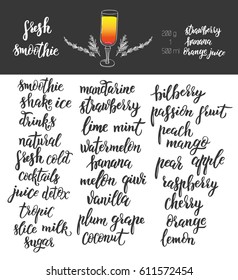 fresh
smoothie
200 g
1
500 ml
strawberry
banana
orange juice
smoothie
shake ice
drinks
natural
fresh cold
cocktails
juice detox
tropic
slice milk
sugar
mandarine
strawberry
lime mint
watermelon
banana
melon qiwi
vanilla
plum grape
coconut
bilberry
passion fruit
peach
mango
pear apple
raspberry
cherry
orange
lemon
shutterstock.com · 611572454